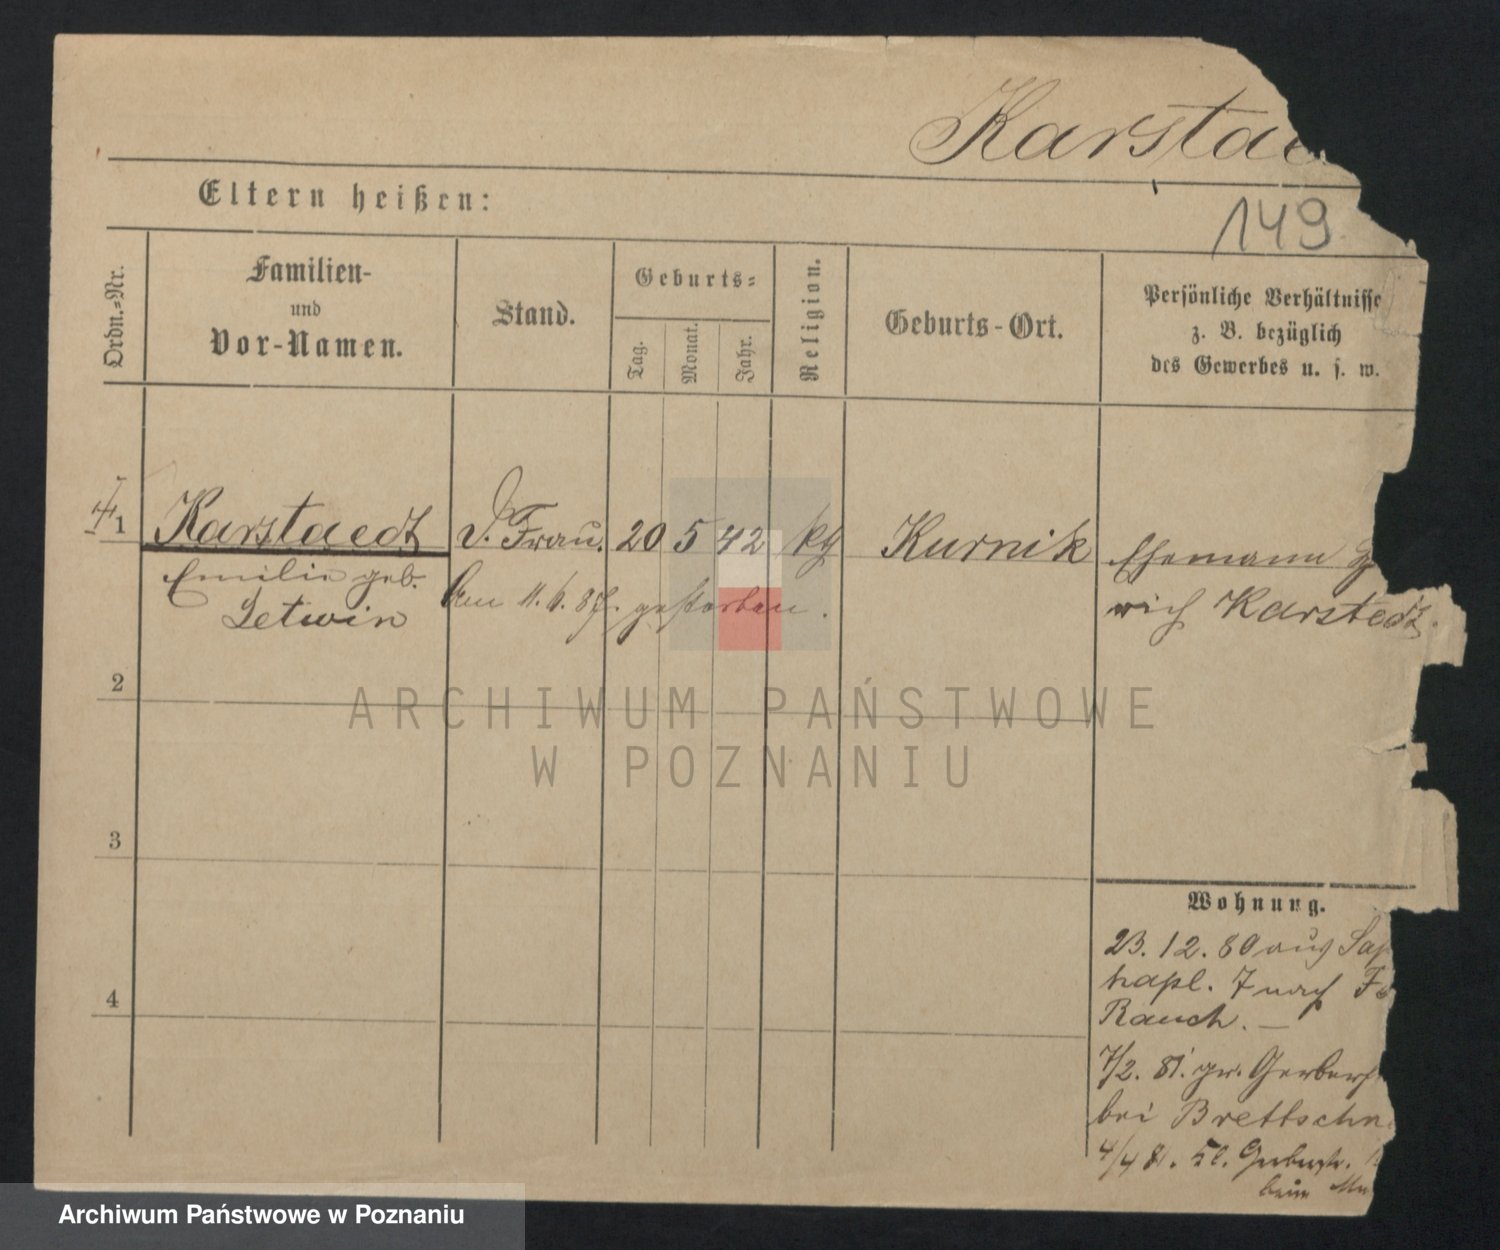 Karstae
149
Eltern heißen:
Ordn.-Nr.
Familien-
und
Vor-Namen.
Stand.
Geburts-
Tag.
Monat.
Jahr.
Religion.
Geburts-Ort.
Persönliche Verhältnisse
z. B. bezüglich
des Gewerbes u. s. w.
1 Karstaedt Frau. 20 5 42 Kurnik Ehemann
Emilie geb. Am 11. 6. 87. gestorben. rich Karstedt.
Letwin
2
3
4
Wohnung.
23. 12. 80 aus Sap
hapl. 7 nach
Rauch. —
7/2. 81. gr. Gerberst
bei Brettschn
4/4 81. kl. Gerberstr.
beim
ARCHIWUM PAŃSTWOWE
W POZNANIU
Archiwum Państwowe w Poznaniu